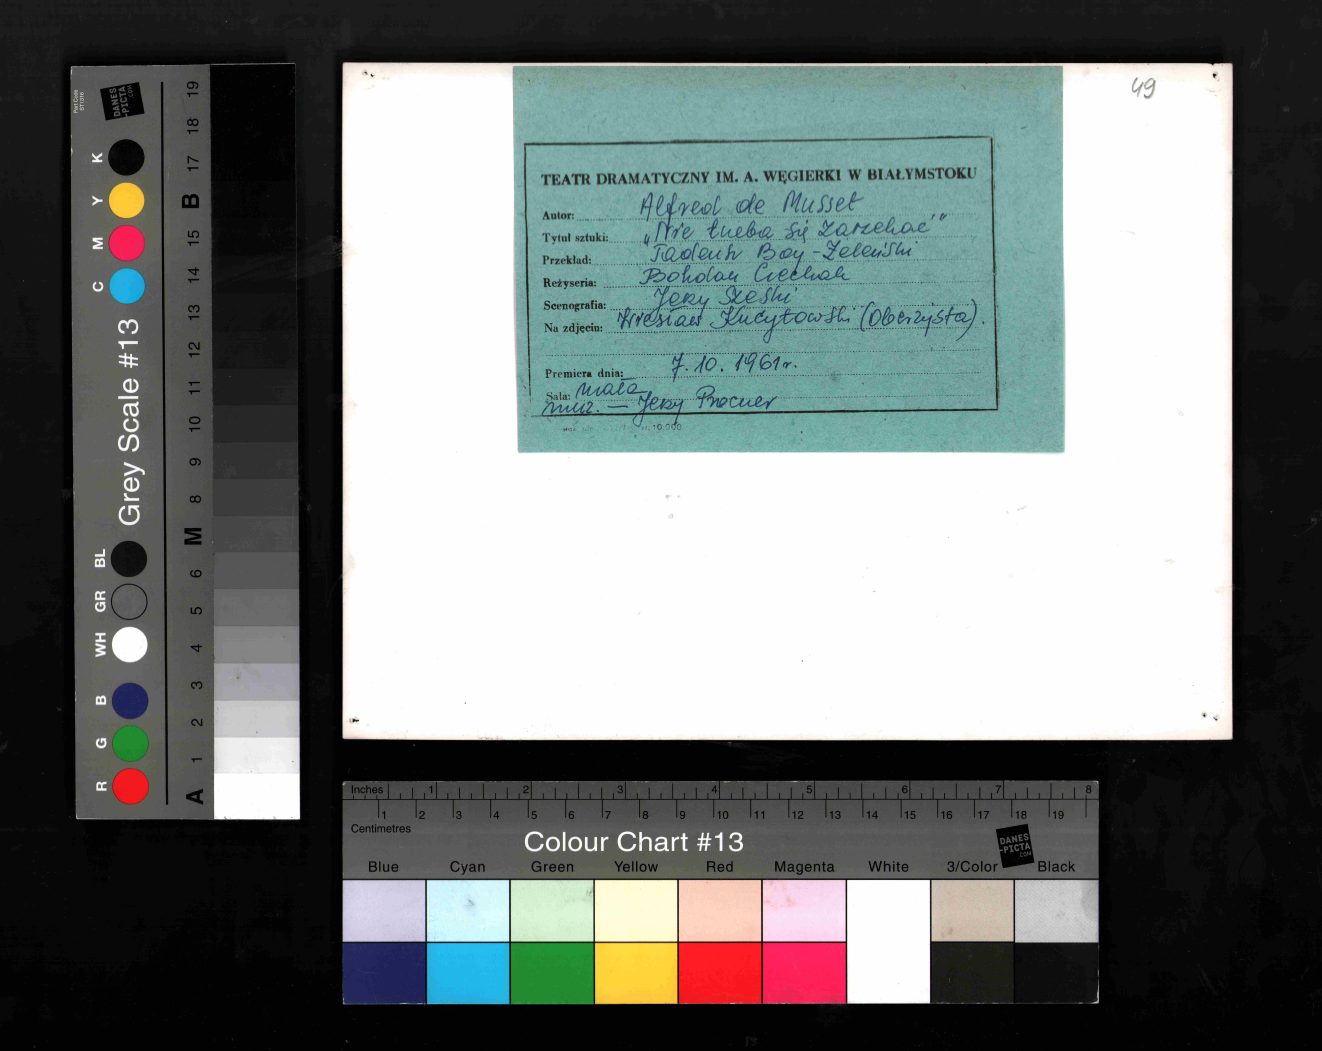 49
TEATR DRAMATYCZNY IM. A. WĘGIERKI W BIAŁYMSTOKU
Autor: Alfred de Musset
Tytuł sztuki: „Nie trzeba się zarzekać"
Przekład: Tadeusz Boy-Żeleński
Reżyseria: Bohdan Czechak
Scenografia: Jerzy Szeski
Na zdjęciu: (Oberżysta).
Premiera dnia: 7.10.1961r.
Sala: mała
muz. — Jerzy Procner
10.000
Part Code
ST1316
DANES
-PICTA
.COM
K Y M C
Grey Scale #13
BL GR WH B G R
19 18 17 B 15 14 13 12 11 10 9 8 M 6 5 4 3 2 1 A
Inches 1 2 3 4 5 6 7 8
1 2 3 4 5 6 7 8 9 10 11 12 13 14 15 16 17 18 19
Centimetres
Colour Chart #13
DANES
-PICTA
.COM
Blue Cyan Green Yellow Red Magenta White 3/Color Black